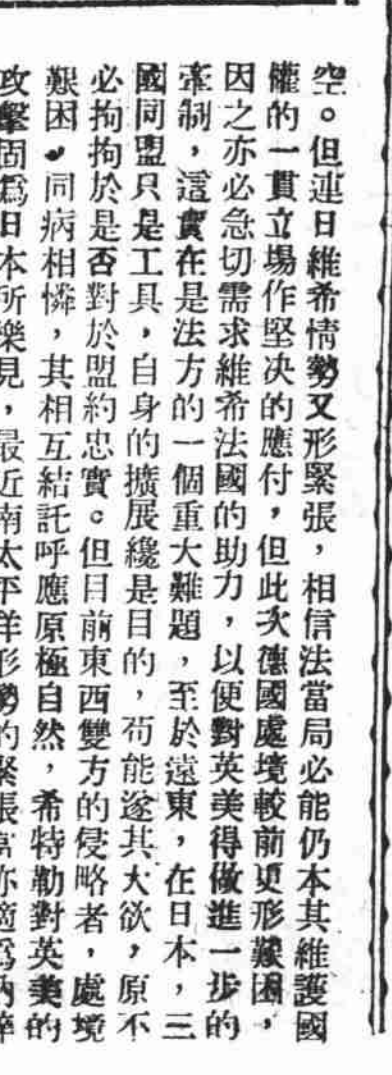 空。但連日維希情勢又形緊張，相信法當局必能仍本其維護國
權的一貫立場作堅决的應付，但此次德國處境較前更形艱困，
因之亦必急切需求維希法國的助力，以便對英美得做進一步的
牽制，這實在是法方的一個重大難題，至於遠東，在日本，三
國同盟只是工具，自身的擴展纔是目的，苟能遂其大欲，原不
必拘拘於是否對於盟約忠實。但目前東西雙方的侵略者，處境
艱困，同病相憐，其相互結託呼應原極自然，希特勒對英美的
攻擊固爲日本所樂見，最近南太平洋形勢的緊張當亦適爲納粹